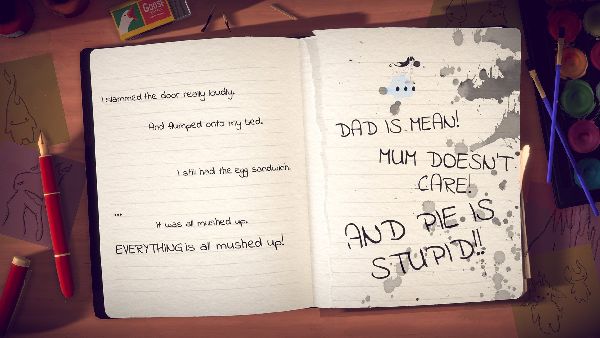 Goose
I slammed the door really loudly.
And flumped onto my bed.
I still had the egg sandwich.
...
It was all mushed up.
EVERYTHING is all mushed up!
DAD IS MEAN!
MUM DOESN'T
CARE!
AND PIE IS
STUPID!!